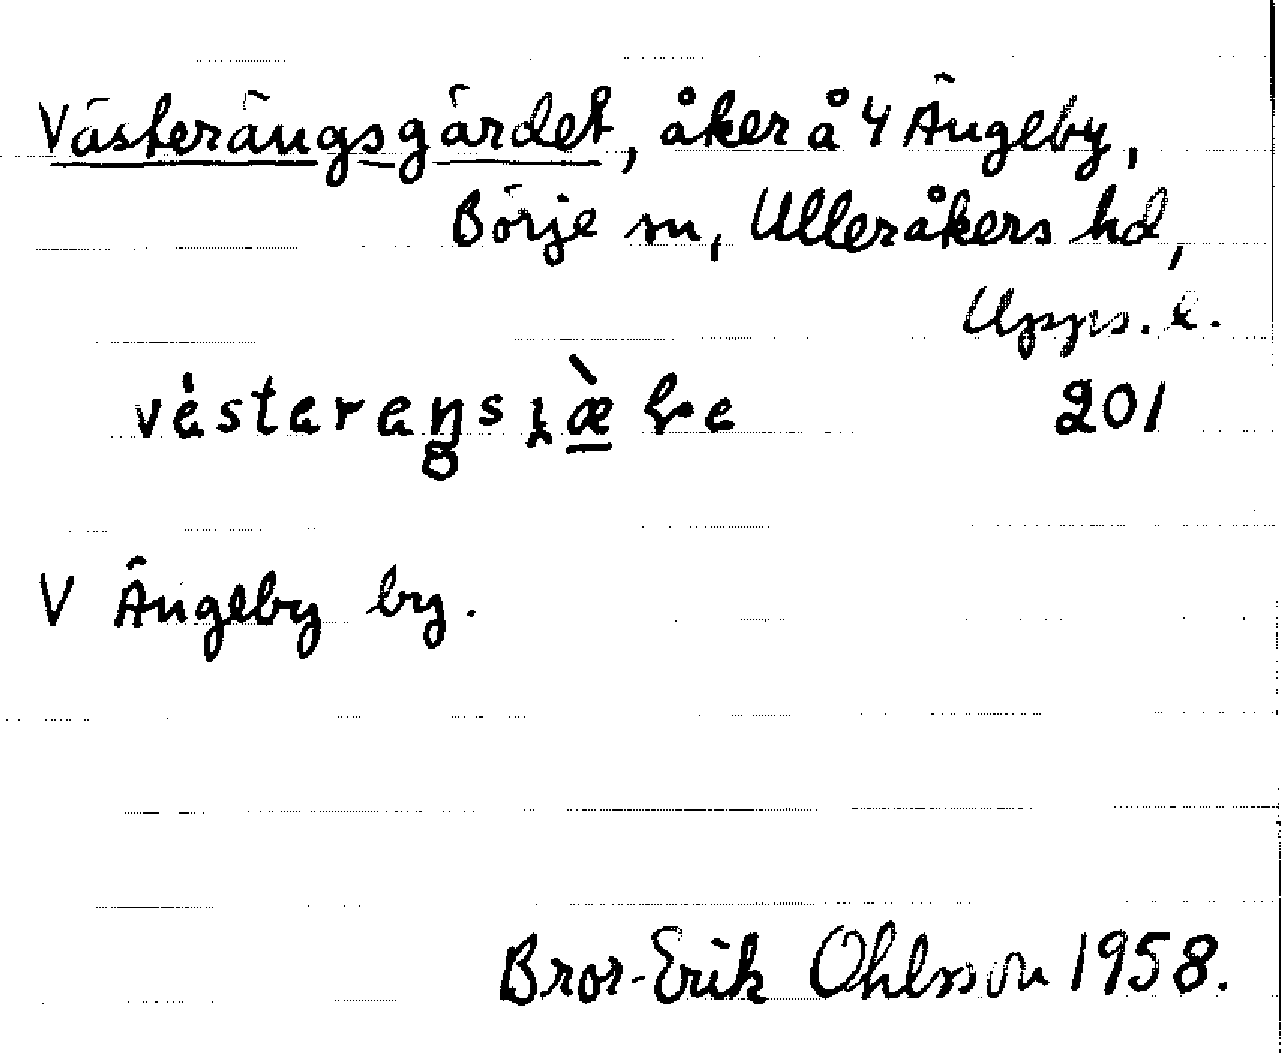 Västerängsgärdet, åker å 4 Ängeby,
Börje sn, Ulleråkers hd,
Upps. l.
201
V Ängeby by.
Bror-Erik Ohlsson 1958.